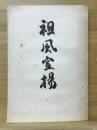 祖風宣揚